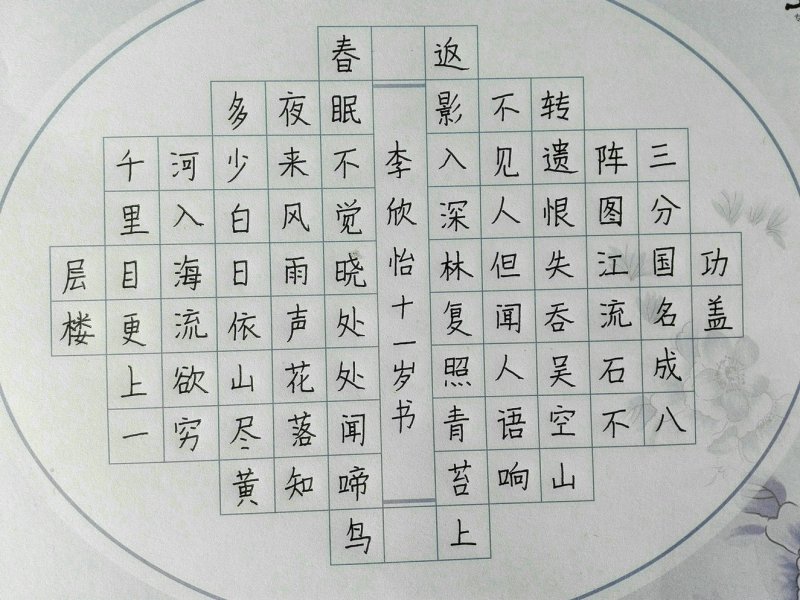 功盖
三分国名成八
阵图江流石不
转遗恨失吞吴空山
不见人但闻人语响
返影入深林复照青苔上
李欣怡十一岁书
春眠不觉晓处处闻啼鸟
夜来风雨声花落知
多少白日依山尽黄
河入海流欲穷
千里目更上一
层楼